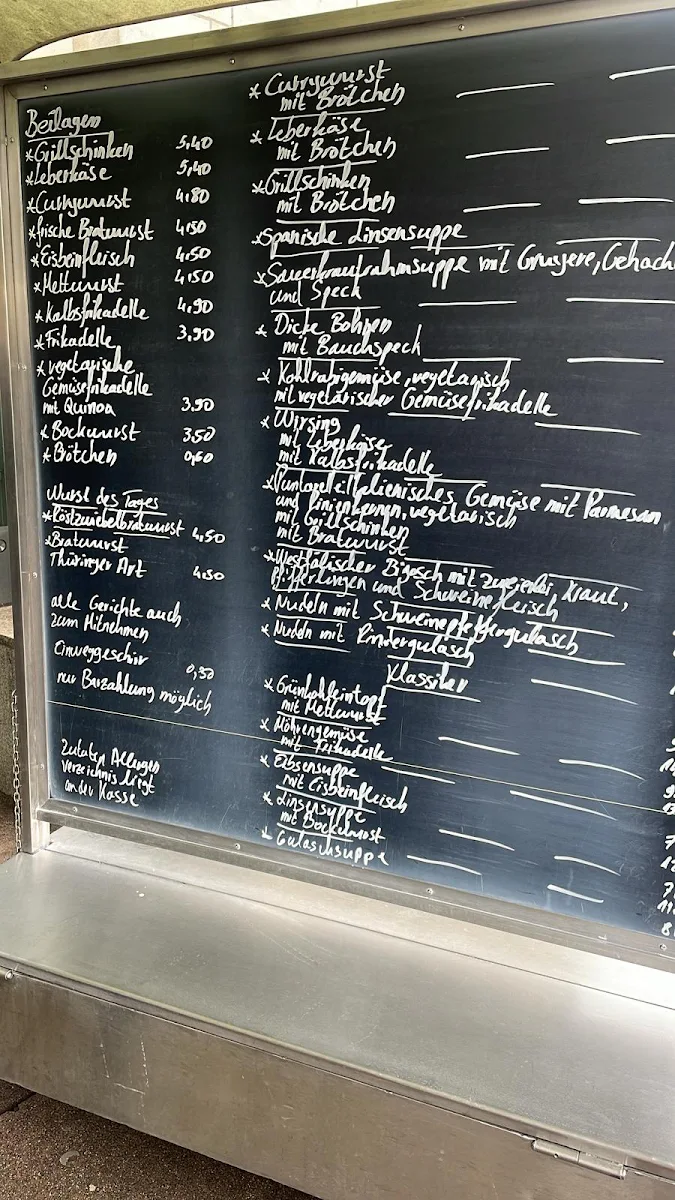 Beilagen
*Grillschinken 5,40
*Leberkäse 5,40
*Currywurst 4,80
*frische Bratwurst 4,50
*Eisbeinfleisch 4,50
*Mettwurst 4,50
*Kalbsfrikadelle 4,90
*Frikadelle 3,90
*vegetarische
Gemüsefrikadelle
mit Quinoa 3,90
*Bockwurst 3,50
*Brötchen 0,60
Wurst des Tages
*Röstzwiebelbratwurst 4,50
*Bratwurst
Thüringer Art 4,50
alle Gerichte auch
zum Mitnehmen
Einweggeschirr 0,50
nur Barzahlung möglich
Zutaten Allergen
verzeichnis liegt
an der Kasse
*Currywurst
mit Brötchen
*Leberkäse
mit Brötchen
*Grillschinken
mit Brötchen
*Spanische Linsensuppe
*Sauerkrautrahmsuppe mit Gruyere, Gehack
und Speck
*Dicke Bohnen
mit Bauchspeck
*Kohlrabigemüse, vegetarisch
mit vegetarischer Gemüsefrikadelle
*Wirsing
mit Leberkäse
mit Kalbsfrikadelle
Italienisches Gemüse mit Parmesan
und Pinienkernen, vegetarisch
mit Grillschinken
mit Bratwurst
*Westfälischer Bigosch mit zweierlei Kraut,
Pfifferlingen und Schweinefleisch
*Nudeln mit Schweinepfeffergulasch
*Nudeln mit Rindergulasch
Klassiker
*Grünkohleintopf
mit Mettwurst
*Möhrengemüse
mit Frikadelle
*Erbsensuppe
mit Eisbeinfleisch
*Linsensuppe
mit Bockwurst
*Gulaschsuppe